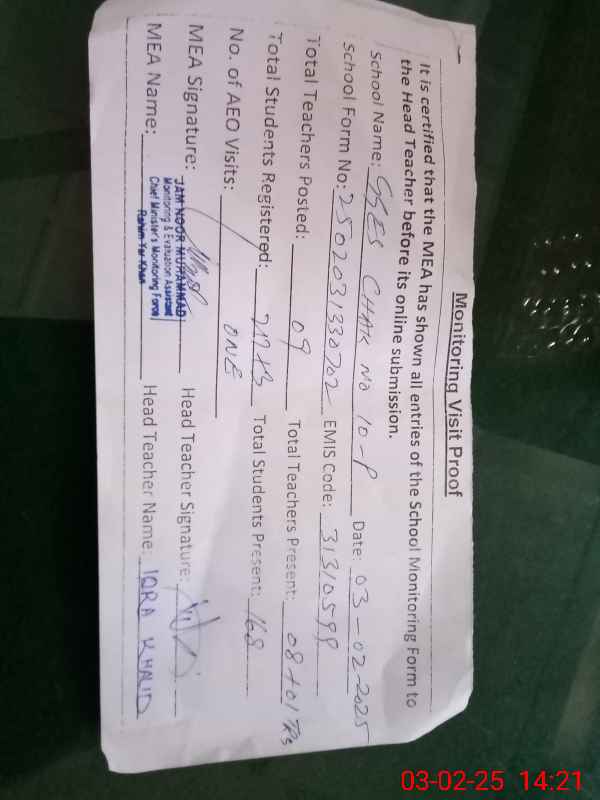 Monitoring Visit Proof
It is certified that the MEA has shown all entries of the School Monitoring Form to
the Head Teacher before its online submission.
School Name: GGES CHAK NO 10-P Date: 03-02-2025
School Form No: 2502031330702 EMIS Code: 31310599
Total Teachers Posted: 09 Total Teachers Present: 08+01
Total Students Registered: Total Students Present: 168
No. of AEO Visits: ONE
MEA Signature: Head Teacher Signature:
JAM NOOR MUHAMMAD
Monitoring & Evaluation Assistant
Chief Minister's Monitoring Force
Rahim Yar Khan
MEA Name: Head Teacher Name: IQRA KHALID
03-02-25 14:21